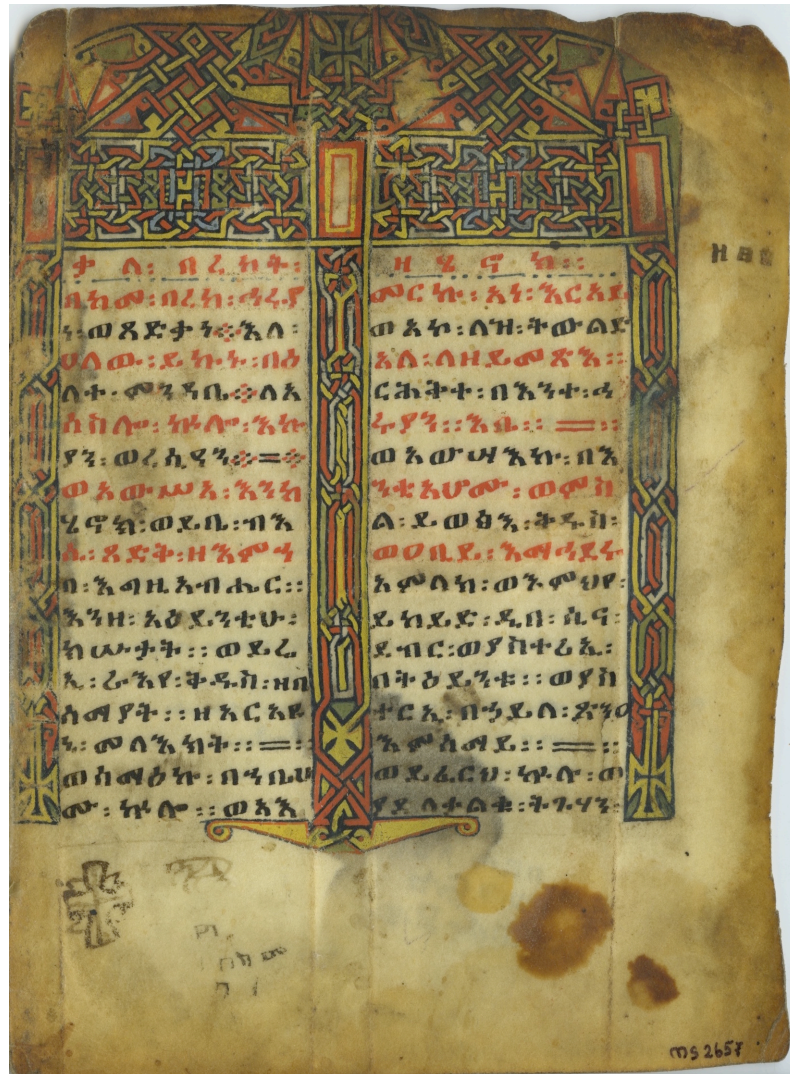 ቃለ፡ በረከት፡
በከመ፡ በረከ፡ ኅሩያ
ነ፡ ወጻድቃነ፡ እለ፡
ሀለው፡ ይኩኑ፡ በዕ
ለተ፡ ምንዳቤ፡ ለአ
ሰስሎ፡ ኵሎ፡ እኩ
ያን፡ ወረሲዓን፡=
ወአውሥአ፡ እንከ
ሄኖክ፡ ወይቤ፡ ብእ
ሲ፡ ጻድቅ፡ ዘእምኀ
በ፡ እግዚአብሔር፡፡
እንዘ፡ አዕይንቲሁ፡
ክሡታት፡፡ ወይሬ
ኢ፡ ራእየ፡ ቅዱስ፡ ዘበ
ሰማያት፡፡ ዘአርአዩ
ኒ፡ መላእክት፡፡=፡
ወሰማዕኩ፡ በኀቤሆ
ሙ፡ ኵሎ፡፡ ወአእ
ዘሄኖክ፡፡
መርኩ፡ አነ፡ እርአይ
ወአኮ፡ ለዝ፡ ትውልድ
አላ፡ ለዘይመጽእ፡፡
ርሑቅተ፡ በእንተ፡ ኅ
ሩያን፡፡ እቤ፡፡ =፡
ወአውሣእኩ፡ በእ
ንቲአሆሙ፡ ወምስ
ል፡ ይወፅእ፡ ቅዱስ፡
ወዐቢይ፡ እማኅደሩ
አምላክ፡ ወእምህየ፡
ይከይድ፡ ዲበ፡ ሲና፡
ደብር፡ ወያስተሪኢ፡
በትዕይንቱ፡፡ ወያስ
ተርኢ፡ በኃይለ፡ ጽንዐ
እምሰማይ፡፡ =፡
ወይፈርህ፡ ኵሉ፡ ወ
ያደለቀልቁ፡ ትጉሃን፡
MS 2657